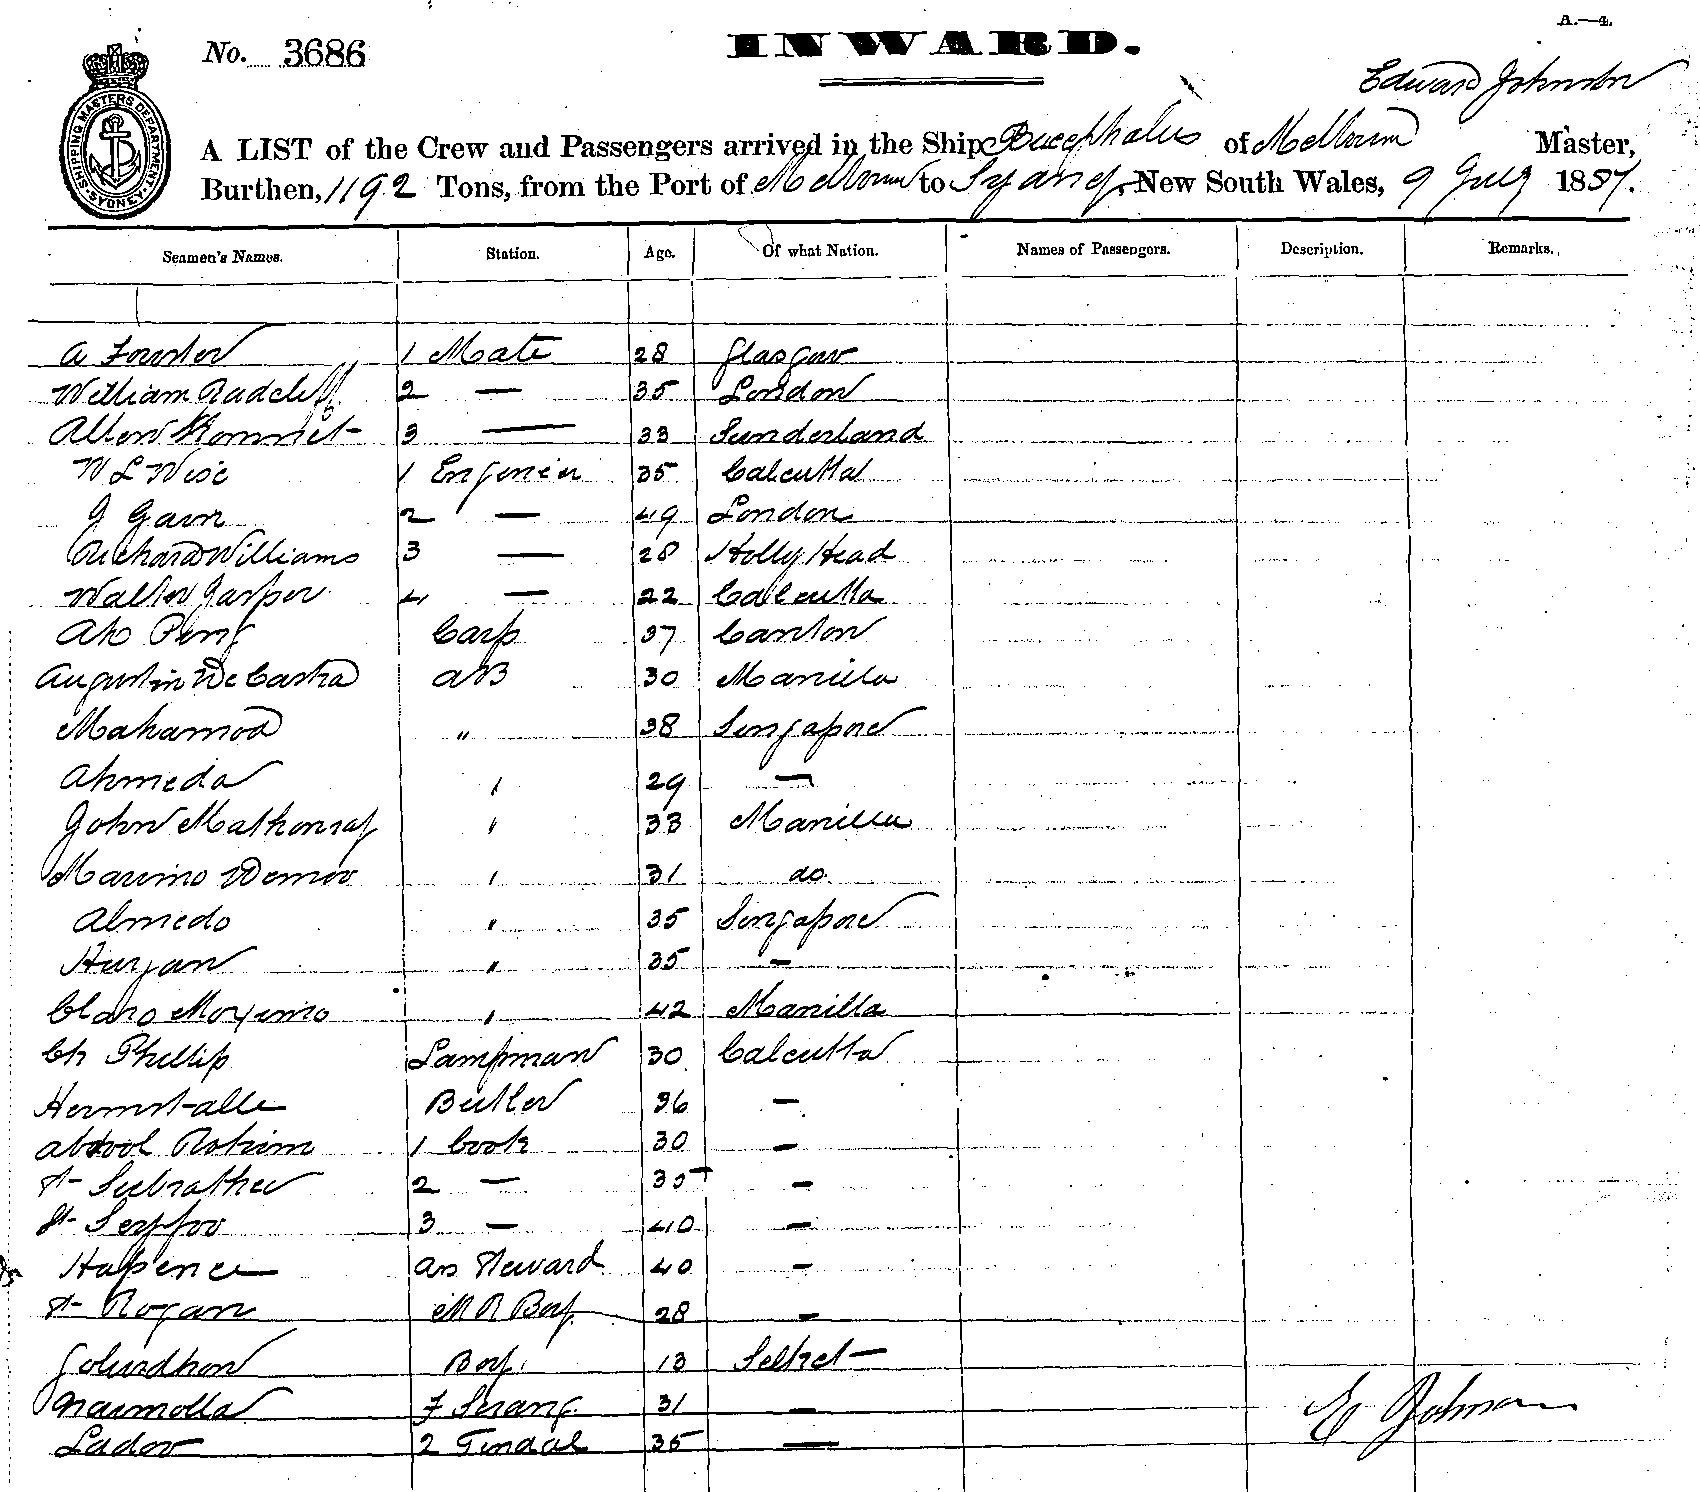 A.—4.
No. 3686
INWARD.
SHIPPING MASTERS DEPARTMENT SYDNEY
Edward Johnson
A LIST of the Crew and Passengers arrived in the Ship Bucephalus of Melbourn Master,
Burthen, 1192 Tons, from the Port of Melbourn to Sydney, New South Wales, 9 July 1887.
Seamen's Names. Station. Age. Of what Nation. Names of Passengers. Description. Remarks.
A 1 Mate 28 Glasgow
William Radcliff 2 — 35 London
3 — 33 Sunderland
W L Wise 1 Engenier 35 Calcutta
J 2 — 49 London
Richard Williams 3 — 28 Holly Head
Walter Jasper 4 — 22 Calcutta
Ah Ping Carp 37 Canton
Augustin De Castra AB 30 Manilla
Mahamod " 38 Singapore
Ahmeda " 29 —
John " 33 Manilla
" 31 do
Almedo " 35 Singapore
" 35 —
Claro " 42 Manilla
Ch Phillip Lampman 30 Calcutta
Butler 36 —
Abdool Rohim 1 Cook 30 —
2 — 35 —
3 — 40 —
As Steward 40 —
M R Boy 28 —
Boy 13 Selhet —
Naimolla Serang 31 —
Ladoo 2 Tindal 35 —
E Johnson